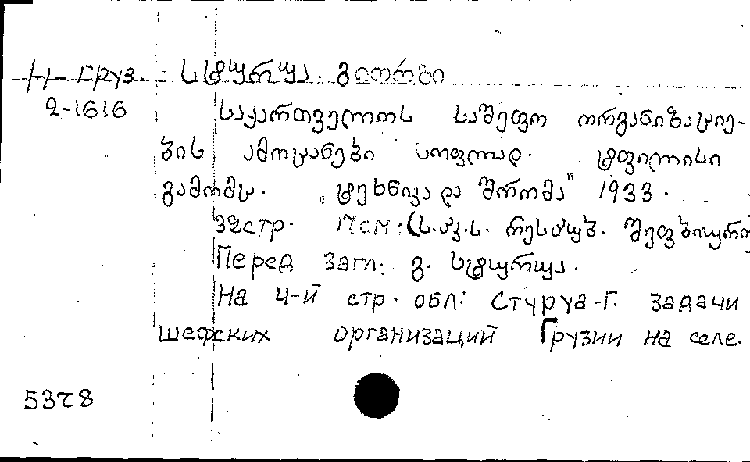 Н-Груз. სტურუა გიორგი
2-1616 საქართველოს საშეფო ორგანიზაციე-
ბის ამოცანები სოფლად. ტფილისი
გამომც. „ტექნიკა და შრომა" 1933.
32стр. 17см. (ს.ს.
Перед загл: გ. სტურუა.
На 4-й стр. обл: Стуруа-Г. задачи
шефских организаций Грузии на селе.
5378